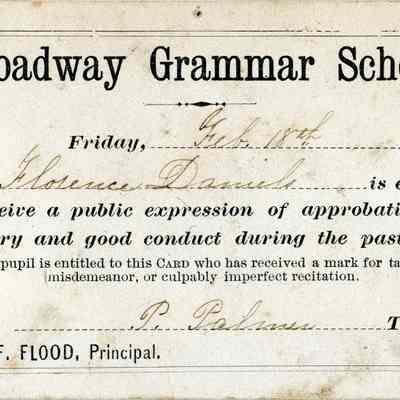 oadway Grammar Scho
Friday, Feb. 18th
Florence Daniels is e
eive a public expression of approbati
ry and good conduct during the past
pupil is entitled to this CARD who has received a mark for ta
misdemeanor, or culpably imperfect recitation.
P. Palmer T
F. FLOOD, Principal.